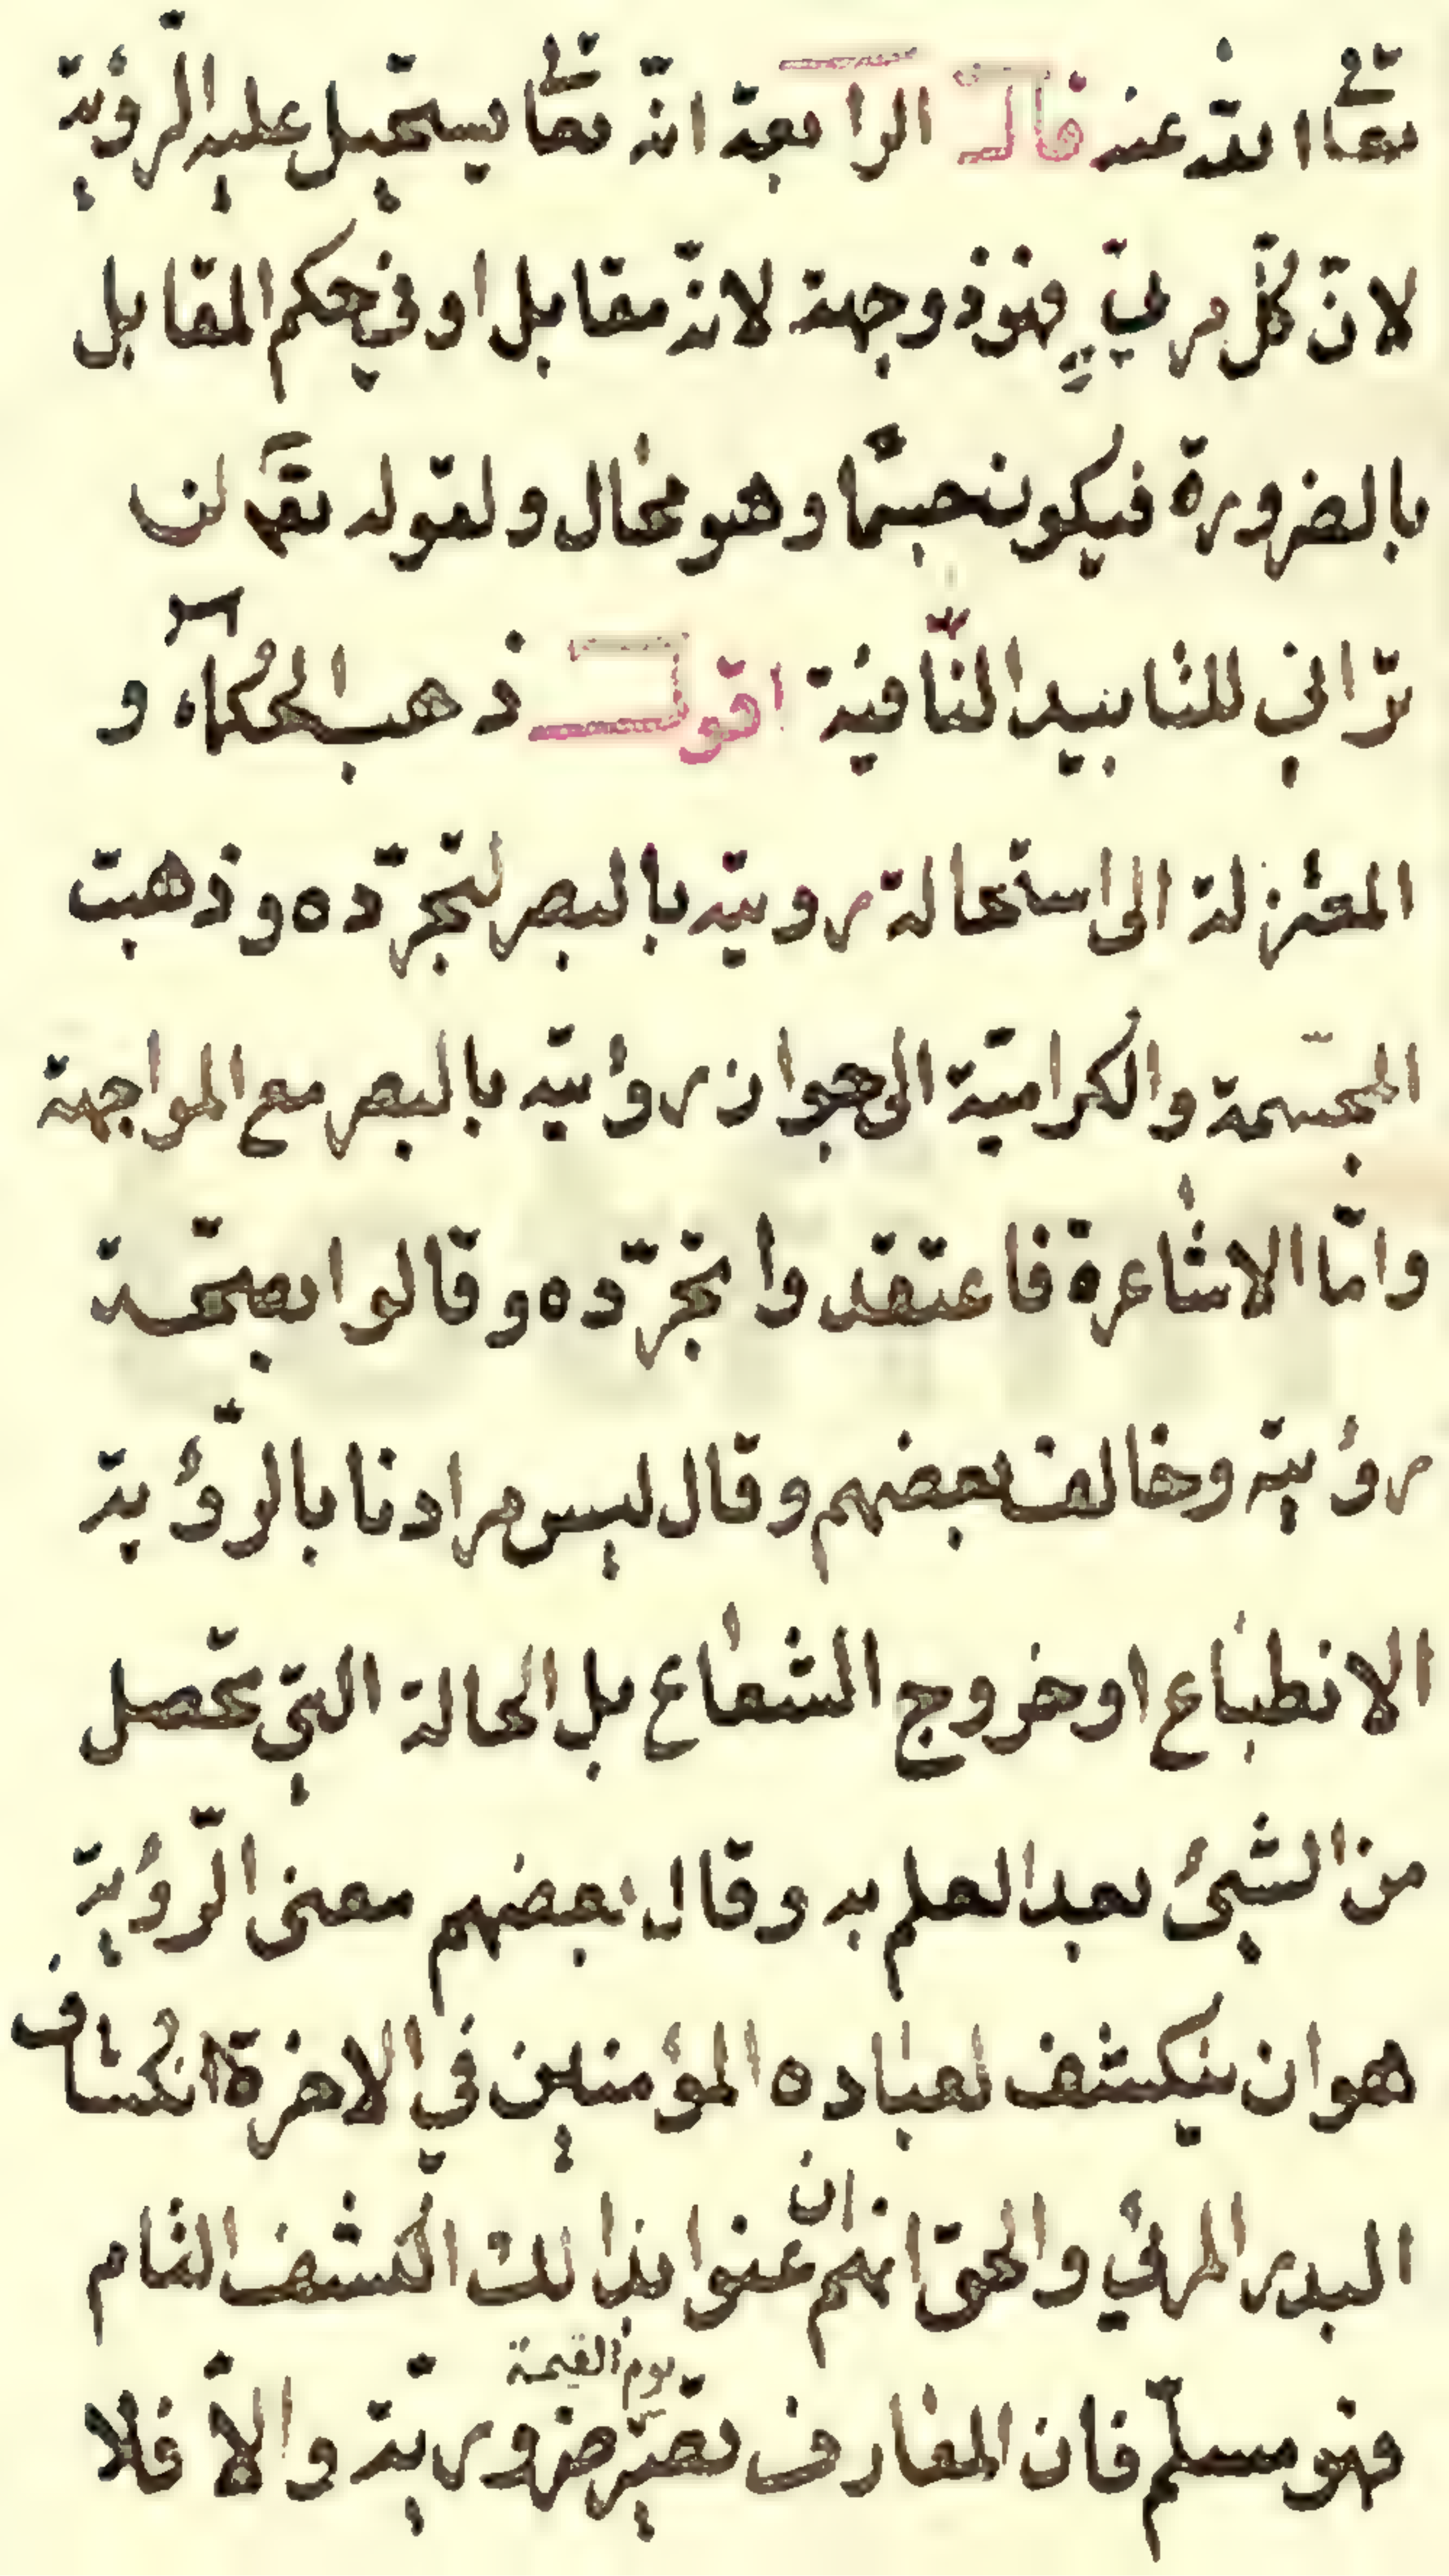 تعالى الله عنه قال الرابعة انه تعالى يستحيل عليه الرؤية
لانّ كلّ مرئيّ فهو ذو جهة لانه مقابل او في حكم المقابل
بالضرورة فيكون جسمًا وهو محال ولقوله تعـ لن
ترٰاني للتأبيد النّافية اقول ذهب الحكماۤء و
المعتزلة الى استحالة رويته بالبصر لتجرّده وذهبت
المجسّمة والكراميّة الى جواز رؤيته بالبصر مع المواجهة
وامّا الاشٰاعرة فاعتقدوا تجرّده وقالوا بصحّة
رؤيته وخالف بعضهم وقال ليس مرادنا بالرّؤية
الانطباع او خروج الشعٰاع بل الحالة التي تحصل
من الشيئ بعد العلم به وقال بعضهم معنى الرّؤية
هو ان ينكشف لعباده المؤمنين في الاخرة انكشاف
البدر المرئي والحقّ انهم ان عنوا بذالك الكشف التام
فهو مسلّم فان المعارف تصير يوم القيمة ضرورية والاّ فلا